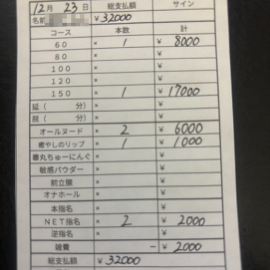 12月 23日 総支払額 サイン
名前 ¥32000
コース 本数 計
60 × 1 ¥ 8000
80 × ¥
100 × ¥
120 × ¥
150 × 1 ¥ 17000
延 ( 分) × ¥
超 ( 分) × ¥
オールヌード × 2 ¥ 6000
癒やしのリップ × 1 ¥ 1000
睾丸ちゅーにんぐ × ¥
敏感パウダー × ¥
前立腺 × ¥
オナホール × ¥
本指名 × ¥
NET指名 × 2 ¥ 2000
逆指名 × ¥
雑費 − ¥ 2000
総支払額 ¥32000